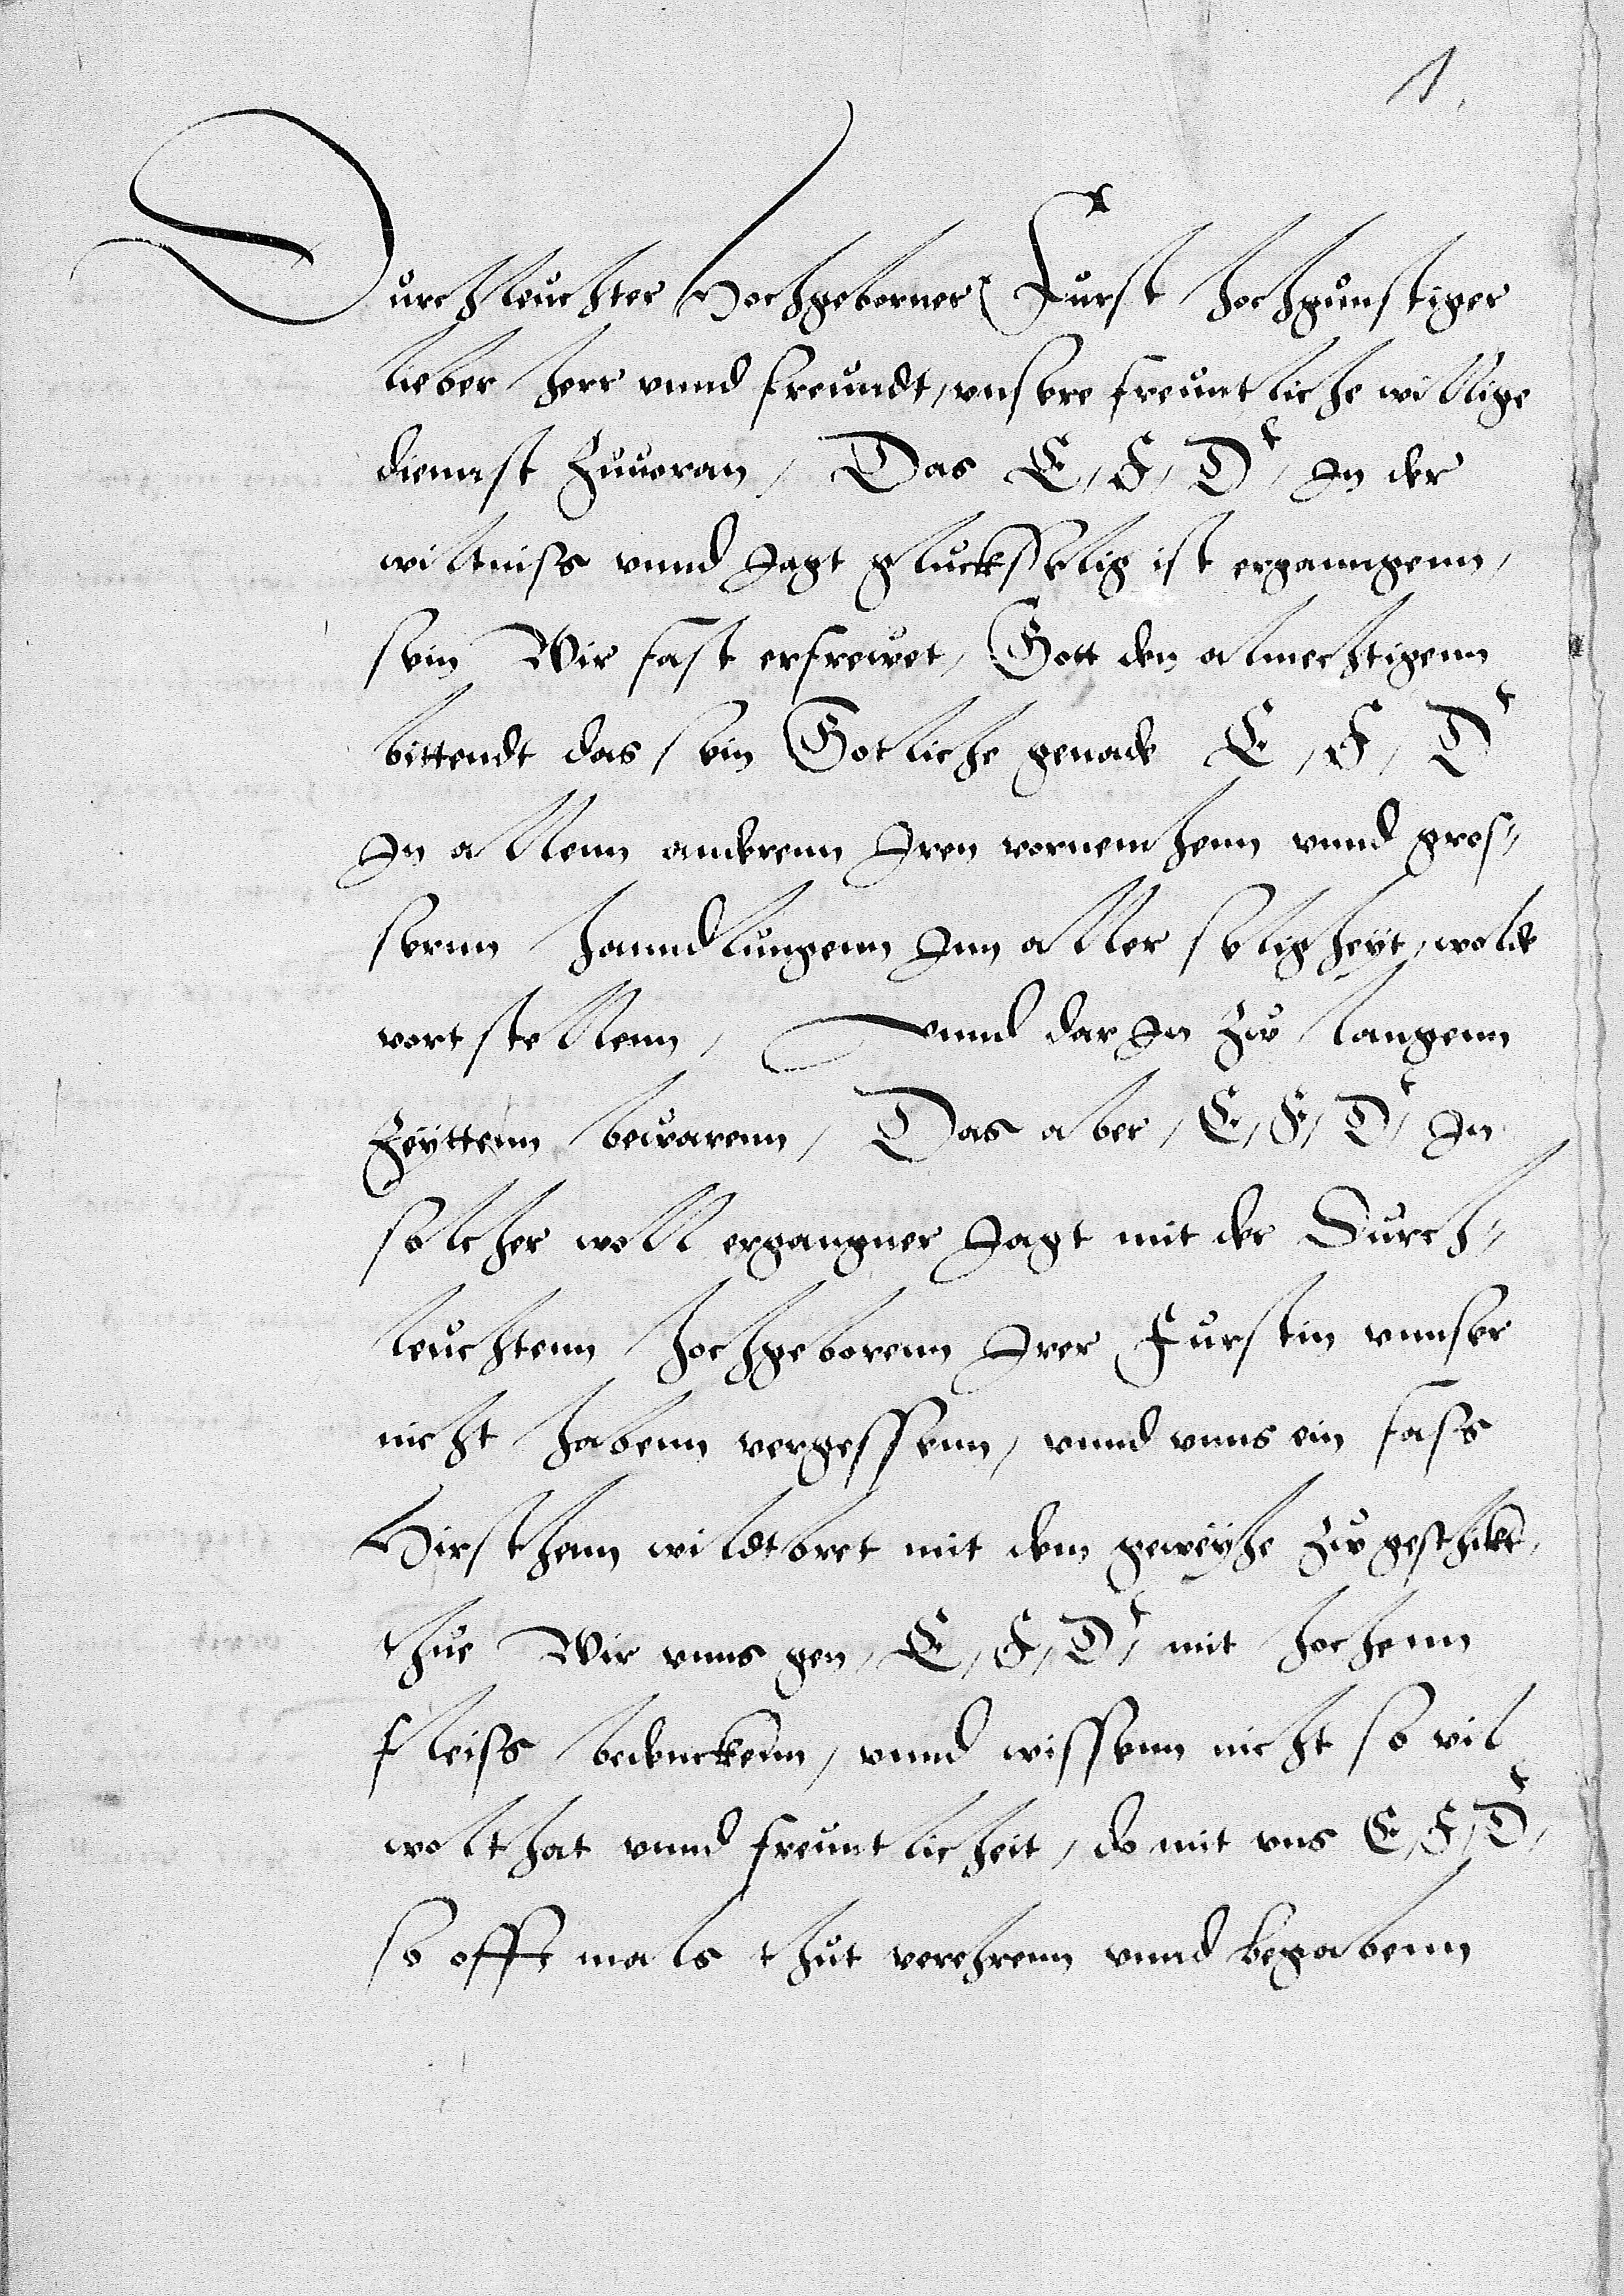 1.
Durchleuchter Hochgeborner Furst hochgunstiger
lieber herr vnnd freundt, vnsere freuntliche willige
diennst zuuoran, Das E, F, Dt, In der
wiltniss vnnd Jagt gluckselig ist erganngenn,
sein Wir fast erfrewet, Gott den almechtigenn
bittendt das sein Gotliche genade E, F, Dt
In allenn anderenn Iren vornemhenn vnnd gros,,
serenn hanndlungenn Inn aller seligheyt, wolde
vortstellenn, vnnd dar In zw langenn
Zeyttenn bewarenn, Das aber, E, F, Dt, In
solcher woll ergangner Jagt mit der Durch,,
leuchtenn hochgeborenn Irer Furstin vnnser
nicht habenn vergessenn, vnnd vnns ein fass
Hirschenn wildtbret mit dem geweyhe zw geschikt,
thue Wir vnns gen, E, F, Dt, mit hochenn
fleiss bedenckenn, vnnd wissenn nicht so vil
wolthat vnnd freuntlicheit, do mit vns E, F, Dt,
so offt mals thut verehrenn vnnd begabenn